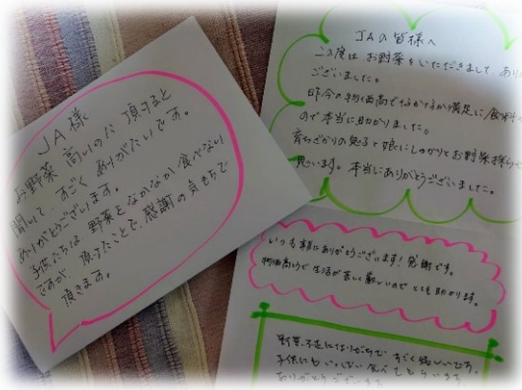 JA様
お野菜 高いのに 頂けると
聞いて、すごく ありがたいです。
ありがとうございます。
子供たちは 野菜をなかなか食べない
ですが、頂けたことで、感謝の気もちで
頂きます。
JAの皆様へ
この度は お野菜をいただきまして、あり
ございました。
昨今の物価高でなかなか満足に食
ので本当に助かりました。
育ちざかりの息子と娘にしっかりとお野菜
思います。本当にありがとうございました。
いつも本当にありがとうございます!感謝です。
物価高で 生活が苦しく厳しいので とても助かります。
野菜、不足になりがちなので すごく嬉しいです。
子供にも いっぱい 食べてもらいます。
ありがとうございます